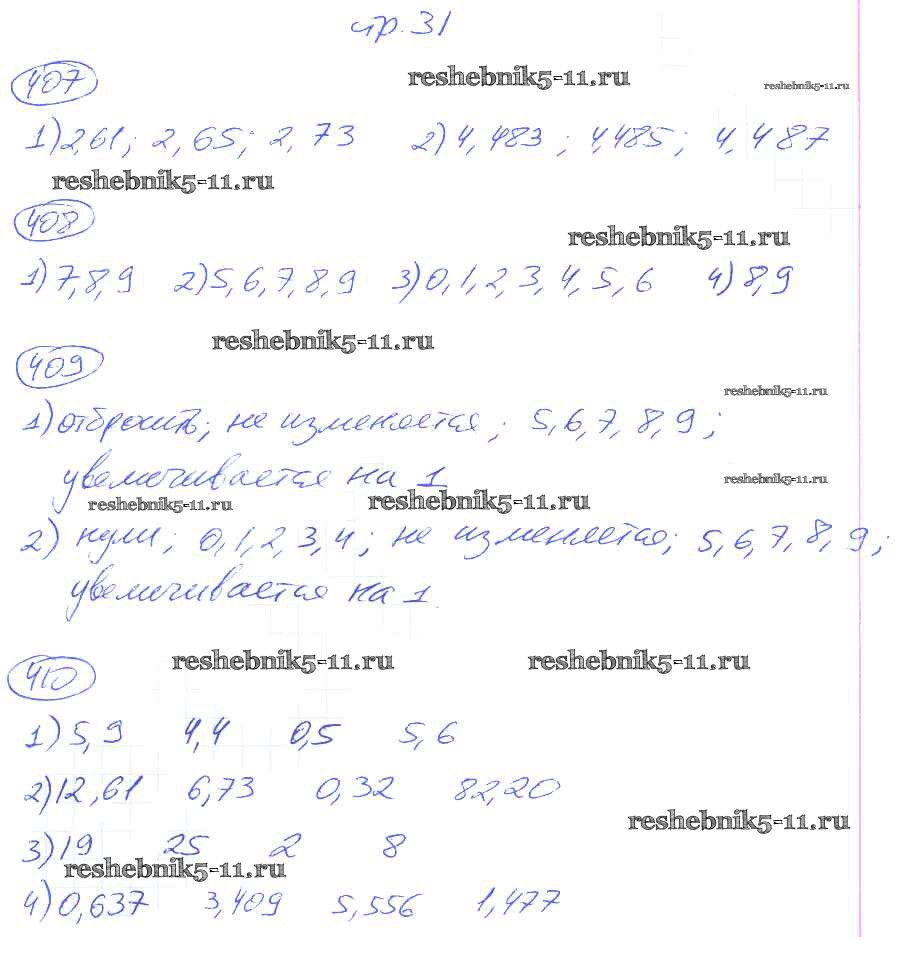 стр. 31
407
reshebnik5-11.ru
reshebnik5-11.ru
1) 2,61; 2,65; 2,73 2) 4,483; 4,485; 4,487
reshebnik5-11.ru
408
reshebnik5-11.ru
1) 7,8,9 2) 5,6,7,8,9 3) 0,1,2,3,4,5,6 4) 8,9
reshebnik5-11.ru
409
reshebnik5-11.ru
1) отбросить; не изменяется; 5,6,7,8,9;
увеличивается на 1
reshebnik5-11.ru
reshebnik5-11.ru
reshebnik5-11.ru
2) нули; 0,1,2,3,4; не изменяется; 5,6,7,8,9;
увеличивается на 1.
410
reshebnik5-11.ru
reshebnik5-11.ru
1) 5,9 4,4 0,5 5,6
2) 12,61 6,73 0,32 82,20
reshebnik5-11.ru
3) 19 25 2 8
reshebnik5-11.ru
4) 0,637 3,409 5,556 1,477